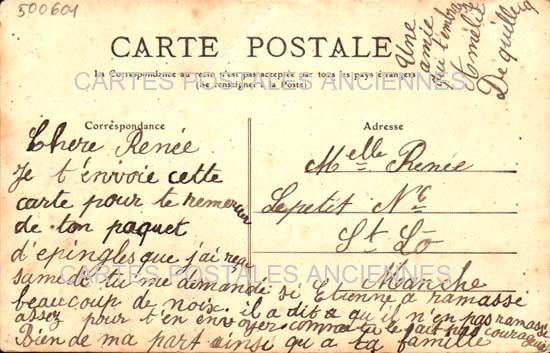 500601
CARTE POSTALE
La Correspondance au recto n'est pas acceptée par tous les pays étrangers
(Se renseigner à la Poste)
CARTES POSTALES ANCIENNES
Correspondance
Chere Renée
Je t'envoie cette
carte pour te remercier
de ton paquet
d'epingles que j'ai reçu
samedi tu me demande si Etienne a ramassé
beaucoup de noix. il a dit qu il n'en pas ramassé
assez pour t'en envoyer comme tu le sait pas courageux
Bien de ma part ainsi qu a ta famille
Une
amie
qui t'embrasse
Amélie
Dequilleq
Adresse
Melle Renée
Lepetit Né
St Lô
Manche
CARTES POSTALES ANCIENNES